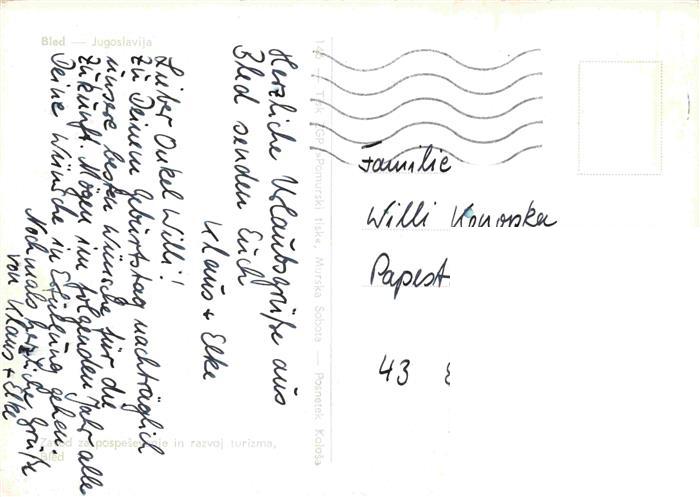 Bled — Jugoslavija
Herzliche Urlaubsgrüße aus
Bled senden Euch
Klaus + Elke
Lieber Onkel Willi!
Zu Deinem Geburtstag nachträglich
unsere besten Wünsche für die
Zukunft. Mögen im folgenden Jahr alle
Deine Wünsche in Erfüllung gehen.
Nochmals herzliche Grüße
von Klaus + Elke
Zavod za pospeševanje in razvoj turizma,
Bled
Pomurski tiska, Murska Sobota — Posnetek Kološa
Familie
Willi
Papest
43